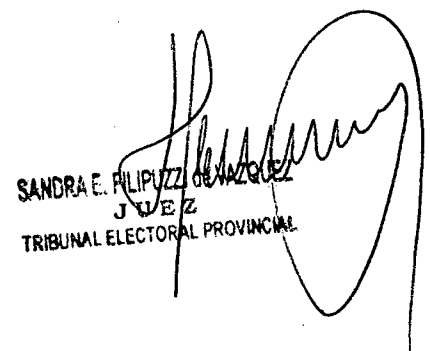 SANDRA E. FILIPUZZI de VAZQUEZ
JUEZ
TRIBUNAL ELECTORAL PROVINCIAL